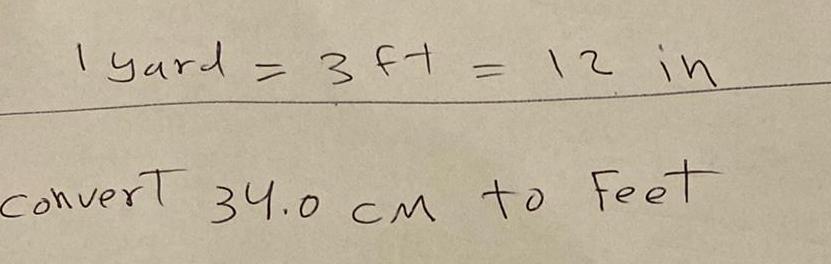 1 yard = 3 ft = 12 in
convert 34.0 cm to Feet